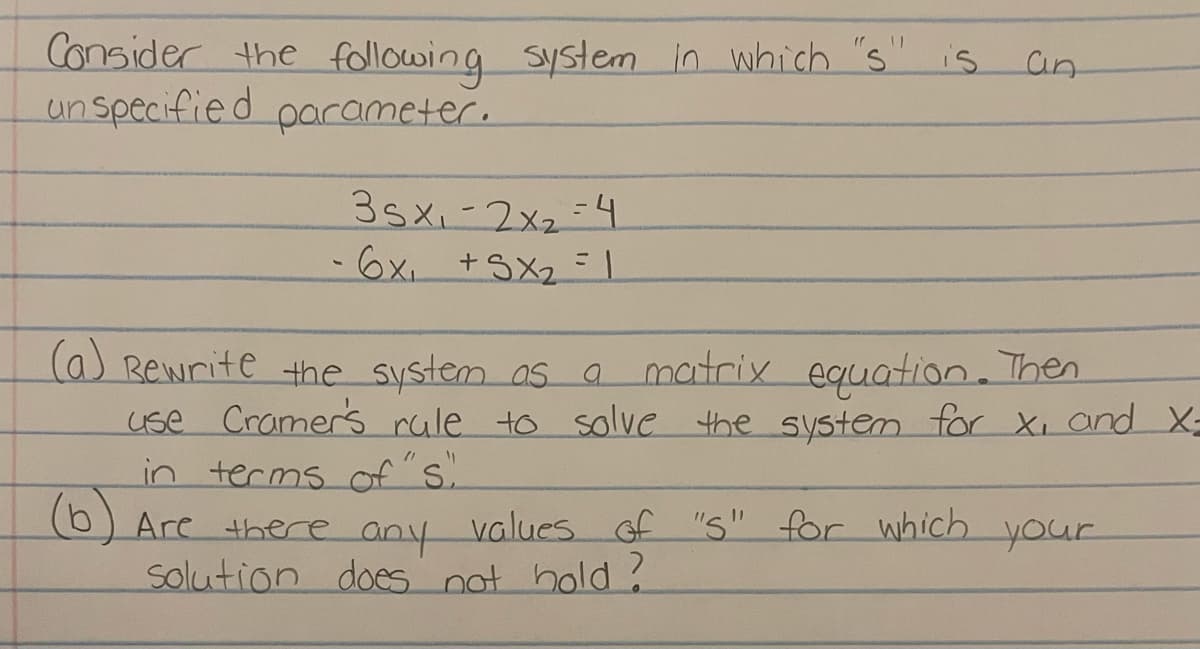 Consider the following system in which "s" is an
unspecified parameter.
3sx₁ - 2x₂ = 4
- 6x₁ + sx₂ = 1
(a) Rewrite the system as a matrix equation. Then
use Cramer's rule to solve the system for x₁ and x₂
in terms of "s".
(b) Are there any values of "s" for which your
solution does not hold?